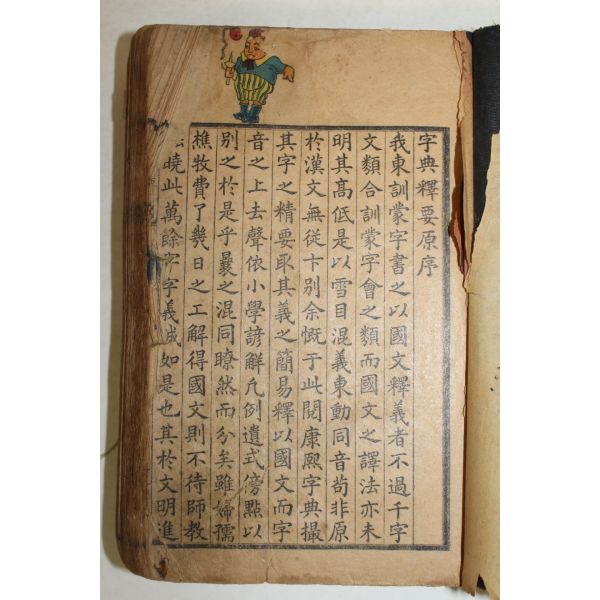 字典釋要原序
我東訓蒙字書之以國文釋義者不過千字
文類合訓蒙字會之類而國文之譯法亦未
明其高低是以雪目混義東動同音苟非原
於漢文無從卞別余慨于此閱康熙字典撮
其字之精要取其義之簡易釋以國文而字
音之上去聲依小學諺解凡例遺式傍點以
別之於是乎曩之混同瞭然而分矣雖婦孺
樵牧費了幾日之工解得國文則不待師敎
曉此萬餘字字義咸如是也其於文明進